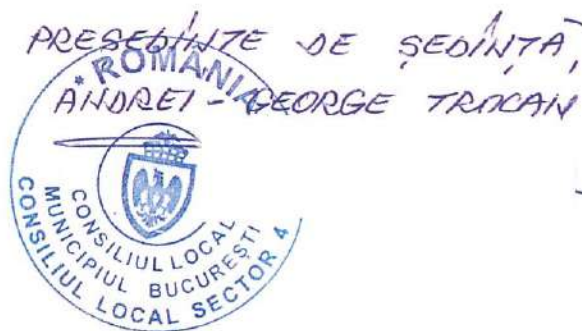 PREȘEDINTE DE ȘEDINȚĂ,
ANDREI-GEORGE TROCAN
* ROMÂNIA
CONSILIUL LOCAL
MUNICIPIUL BUCUREȘTI
CONSILIUL LOCAL SECTOR 4